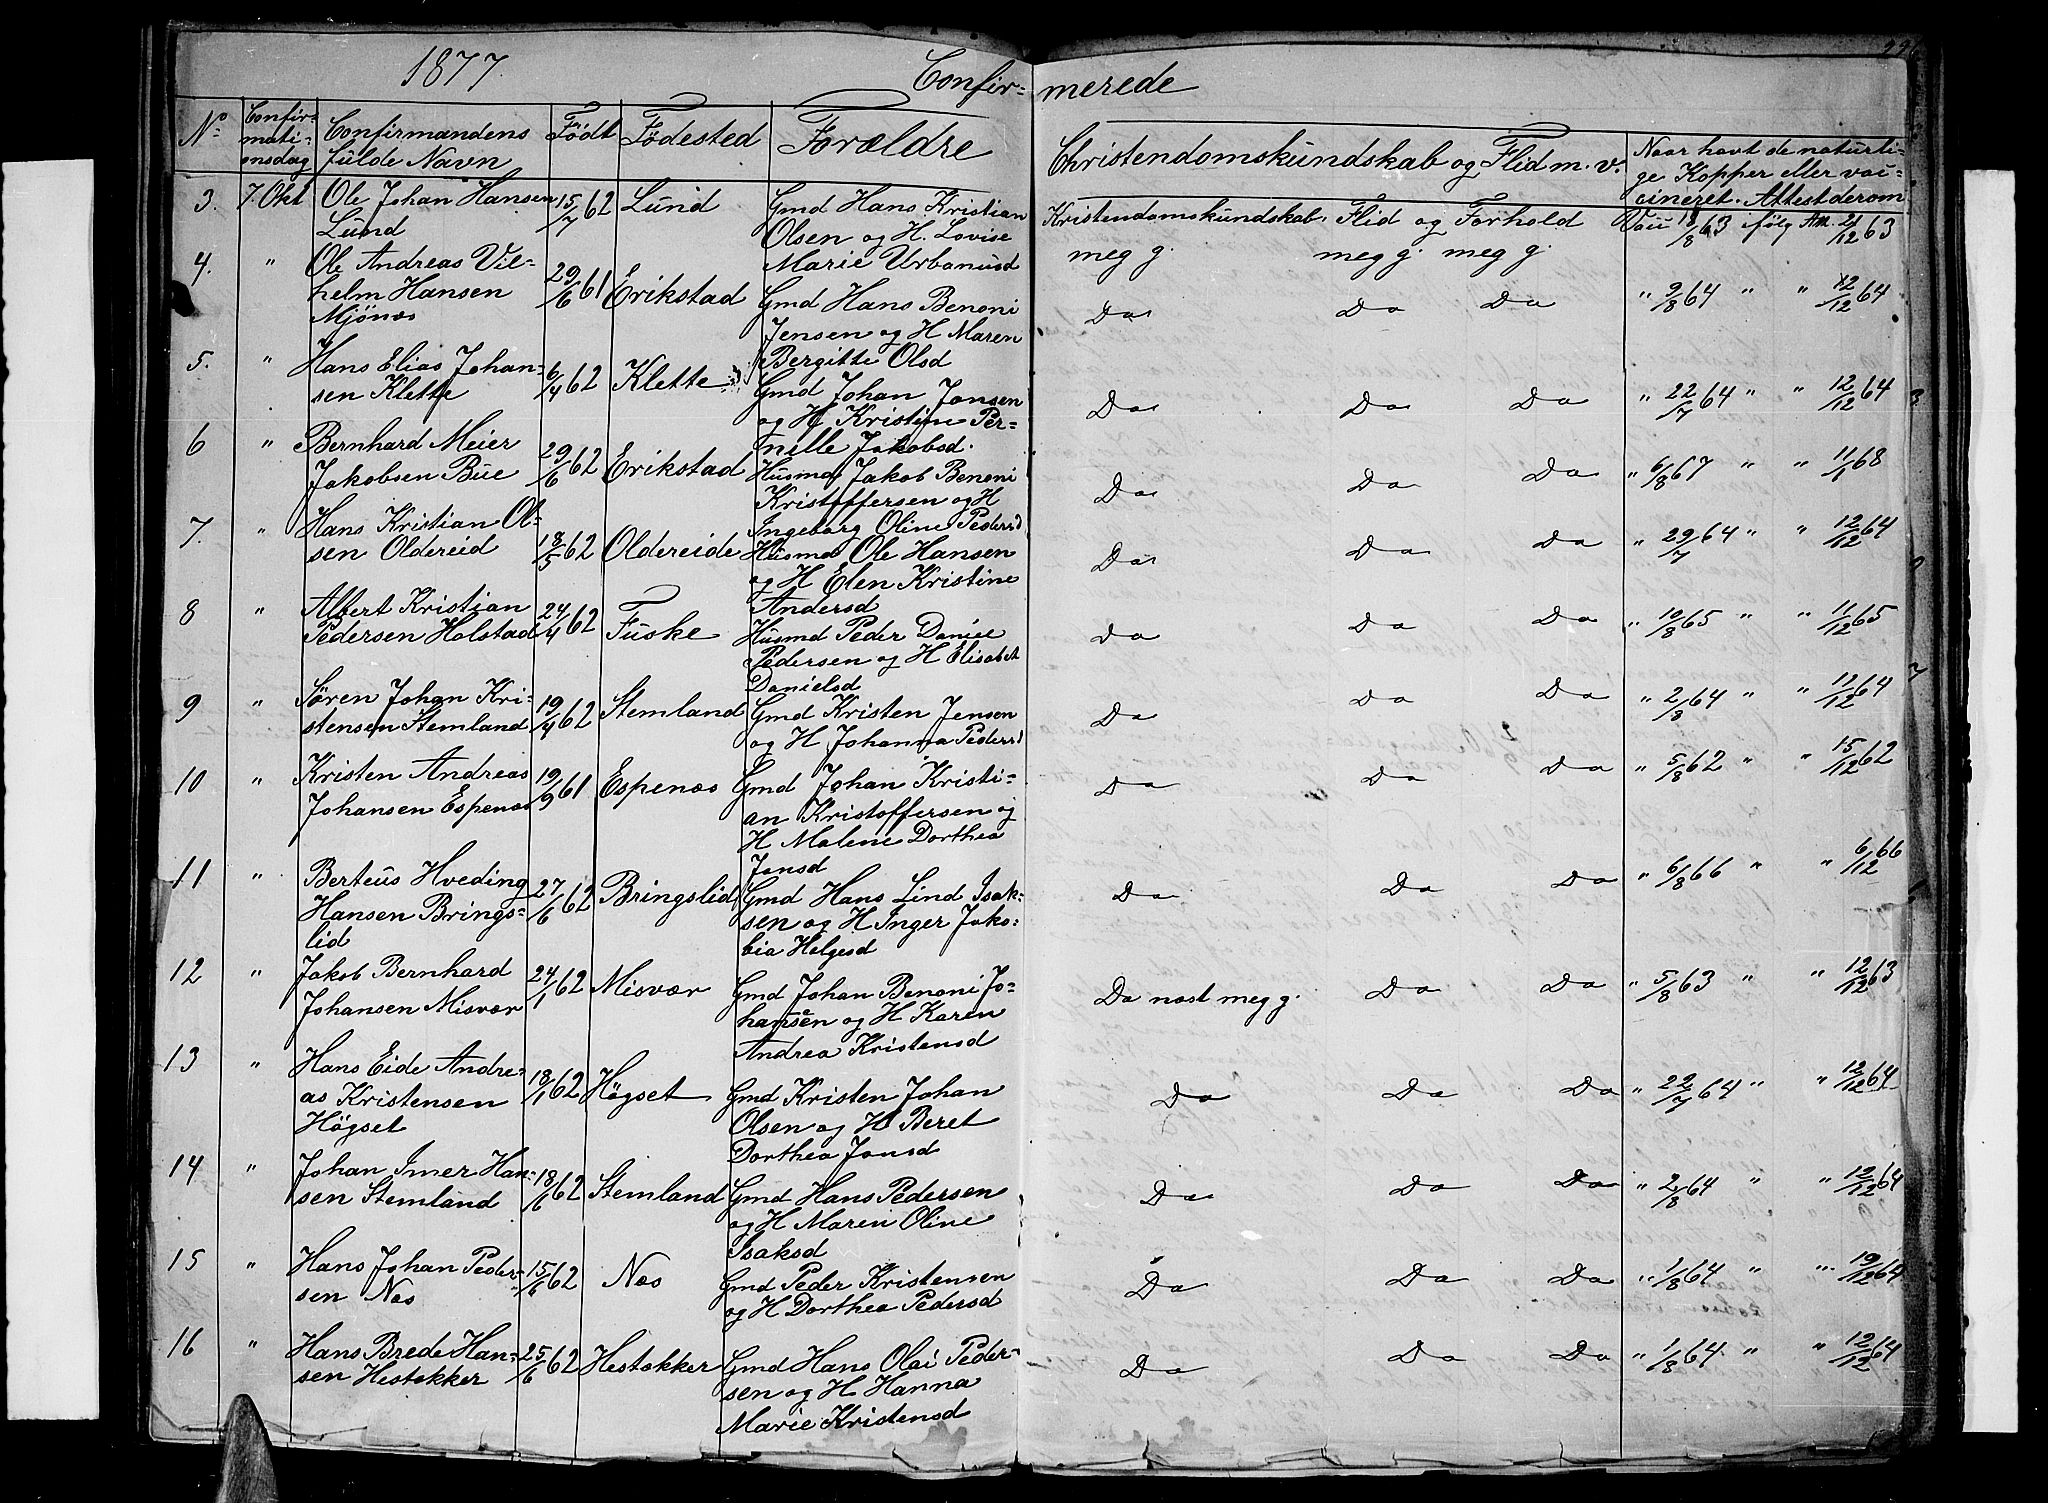 1877.
Confir-
merede
No
Confir-
mati-
onsdag
Confirmandens
fulde Navn
Födt
Födested
Forældre
Christendomskundskab og Flid m. v.
Naar havt de naturli-
ge Kopper eller vac-
cineret. Attest derom
3. 7. Okt Ole Johan Hansen 15/7 62 Lund Gmd Hans Kristian
Lund Olsen og H. Lovise
Marie Urbanusd
Kristendomskundskab. Flid og Forhold
meg g. meg g. meg g.
/8 63 ifølg Att. 21/12 63
4. " Ole Andreas Vil-
helm Hansen 29/6 61 Erikstad Gmd Hans Benoni
Mjönæs Jensen og H Maren
Bergitte Olsd
Do Do Do " 9/8 64 " " 12/12 64
5. " Hans Elias Johan-
sen Klette 6/4 62 Klette Gmd Johan Jonsen
og H Kristine Per-
nille Jakobsd.
Do Do Do " 22/7 64 " " 12/12 64
6 " Bernhard Meier
Jakobsen Bue 29/6 62 Erikstad Husmd Jakob Benoni
Kristoffersen og H
Ingeborg Oline Pedersd
Do Do Do " 6/8 67 " " 11/1 68
7. " Hans Kristian Ol-
sen Oldereid 18/5 62 Oldereide Husmd Ole Hansen
og H Elen Kristine
Andersd
Do Do Do " 29/7 64 " " 12/12 64
8 " Albert Kristian
Pedersen Holstad 24/4 62 Fuske Husmd Peder Daniel
Pedersen og H Elisabet
Danielsd
Do Do Do " 10/8 65 " " 11/12 65
9 " Sören Johan Kri-
stensen Stemland 19/4 62 Stemland Gmd Kristen Jensen
og H Johanna Pedersd
Do Do Do " 2/8 64 " " 12/12 64
10 " Kristen Andreas
Johansen Espenæs 19/9 61 Espenæs Gmd Johan Kristi-
an Kristoffersen og
H Malene Dorthea
Jonsd
Do Do Do " 5/8 62 " " 15/12 62
11 " Berteus Hveding
Hansen Brings-
lid 27/6 62 Bringslid Gmd Hans Lind Isak-
sen og H Inger Jako-
bia Helgesd
Do Do Do " 6/8 66 " " 6/12 66
12 " Jakob Bernhard
Johansen Misvær 24/1 62 Misvær Gmd Johan Benoni Jo-
hansen og H Karen
Andrea Kristensd
Do næst meg g. Do Do " 5/8 63 " " 12/12 63
13 " Hans Eide Andre-
as Kristensen
Högset 18/1 62 Högset Gmd Kristen Johan
Olsen og H Beret
Dorthea Jonsd
Do Do Do " 22/7 64 " " 12/12 64
14 " Johan Imer Han-
sen Stemland 18/6 62 Stemland Gmd Hans Pedersen
og H Maren Oline
Isaksd
Do Do Do " 2/8 64 " " 12/12 64
15 " Hans Johan Peder-
sen Næs 15/6 62 Næs Gmd Peder Kristensen
og H Dorthea Pedersd
Do Do Do " 1/8 64 " " 19/12 64
16 " Hans Brede Han-
sen Hestokker 25/6 62 Hestokker Gmd Hans Olai Peder-
sen og H Hanna
Marie Kristensd
Do Do Do " 1/8 64 " " 12/12 64